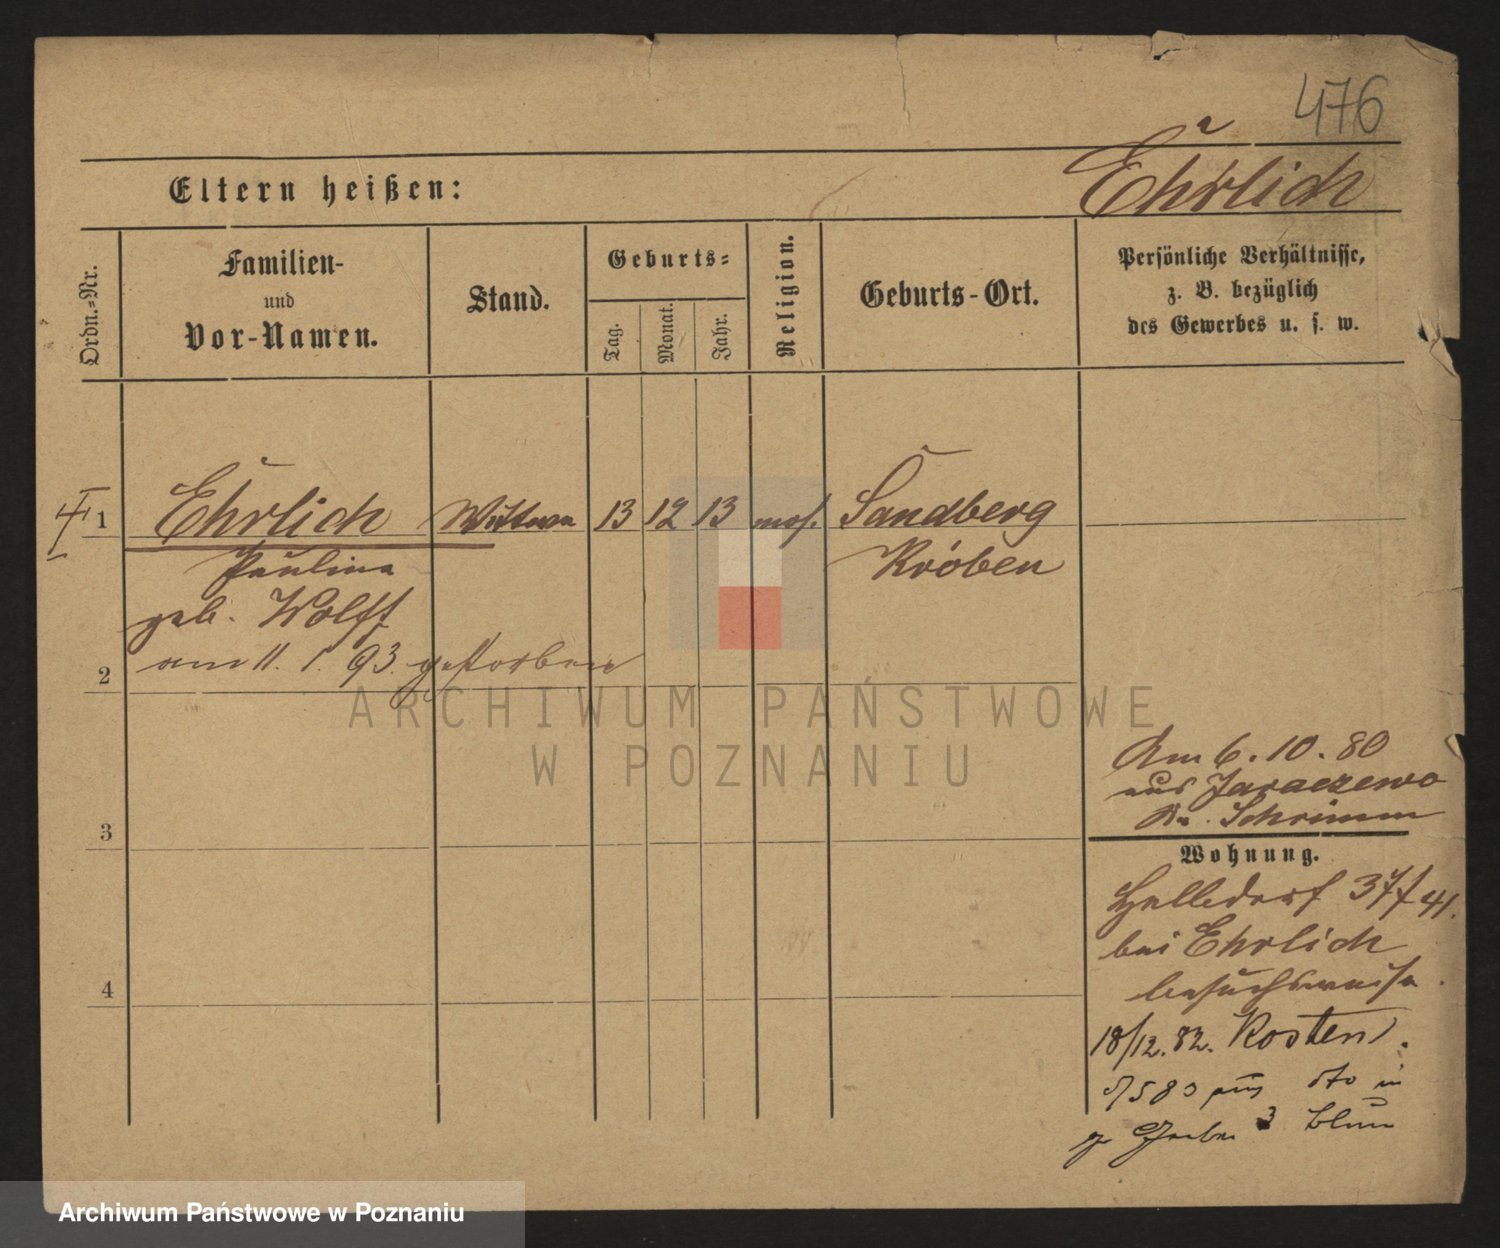 476
Ehrlich
Eltern heißen:
Ordn.-Nr.
Familien-
und
Vor-Namen.
Stand.
Geburts-
Tag.
Monat.
Jahr.
Religion.
Geburts-Ort.
Persönliche Verhältnisse,
z. B. bezüglich
des Gewerbes u. s. w.
1 Ehrlich Wittwe 13 12 13 mos. Sandberg
Pauline Kröben
geb. Wolff
am 11. 1. 93. gestorben
2
ARCHIWUM PAŃSTWOWE
W POZNANIU
Am 6. 10. 80
aus Jaraczewo
Kr. Schrimm
3
Wohnung.
Halldorf 37/41.
bei Ehrlich
besuchsweise.
4
18/12. 82. Kosten.
583 dto in
3
Archiwum Państwowe w Poznaniu